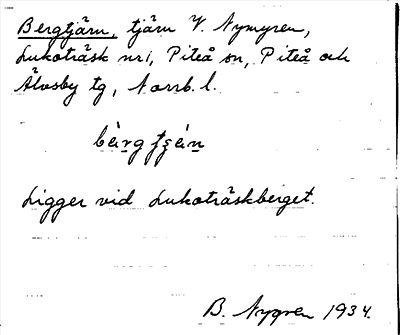 Bergtjärn, tjärn V. Nymyren,
Lukoträsk nr 1, Piteå sn, Piteå och
Älvsby tg, Norrb. l.
bärg tʂä́n
Ligger vid Lukoträskberget.
B. Nygren 1934.